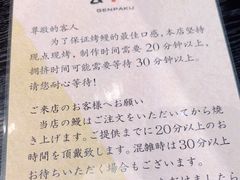 GENPAKU
尊敬的客人
为了保证烤鳗的最佳口感，本店坚持
现点现烤，制作时间需要 20 分钟以上，
拥挤时间可能需要等待 30 分钟以上，
请您耐心等待！
ご来店のお客様へお願い
当店の鰻はご注文をいただいてから焼
き上げます。ご提供までに20分以上のお
時間を頂戴致します。混雑時は30分以上
お待ちいただく場合もございます。